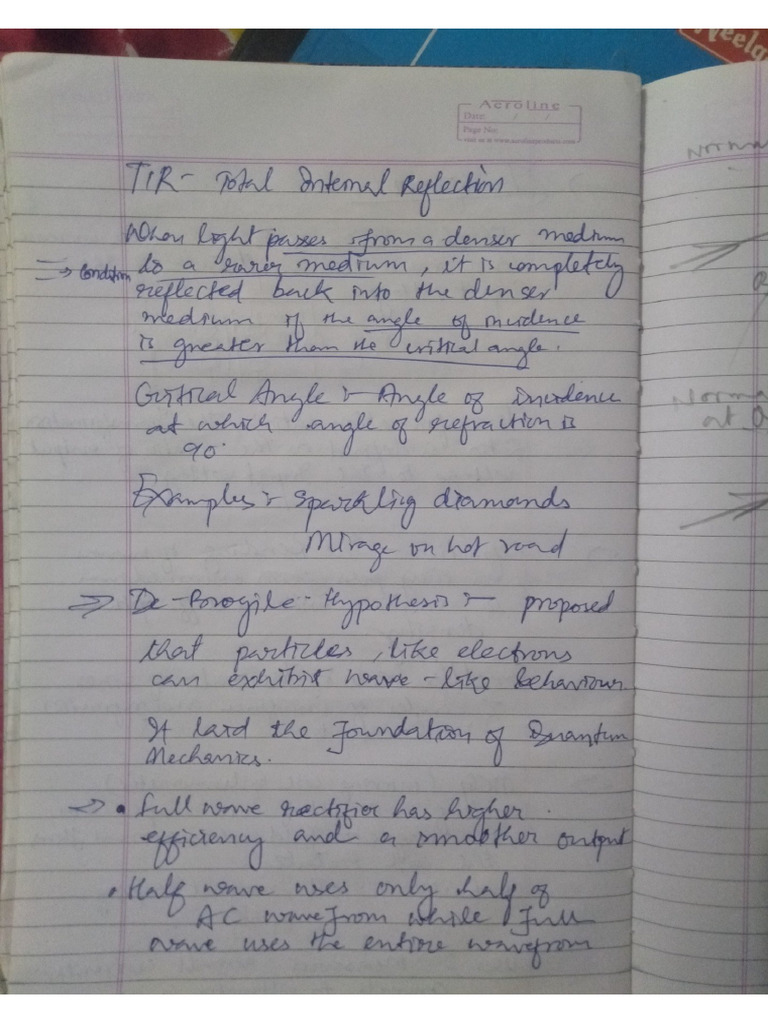 Neela
Aeroline
Date: / /
Page No:
TIR - Total Internal Reflection
When light passes from a denser medium
=> Condition to a rarer medium, it is completely
reflected back into the denser
medium if the angle of incidence
is greater than the critical angle.
Critical Angle :- Angle of incidence
at which angle of refraction is
90°
Examples :- Sparkling diamonds
Mirage on hot road
=> De-Borogile-Hypothesis :- proposed
that particles, like electrons
can exhibit wave-like behaviour
It laid the Foundation of Quantum
Mechanics.
=> • Full wave rectifier has higher
efficiency and a smoother output
• Half wave uses only half of
AC wavefrom while full
wave uses the entire wavefrom
Norma
Norma
at